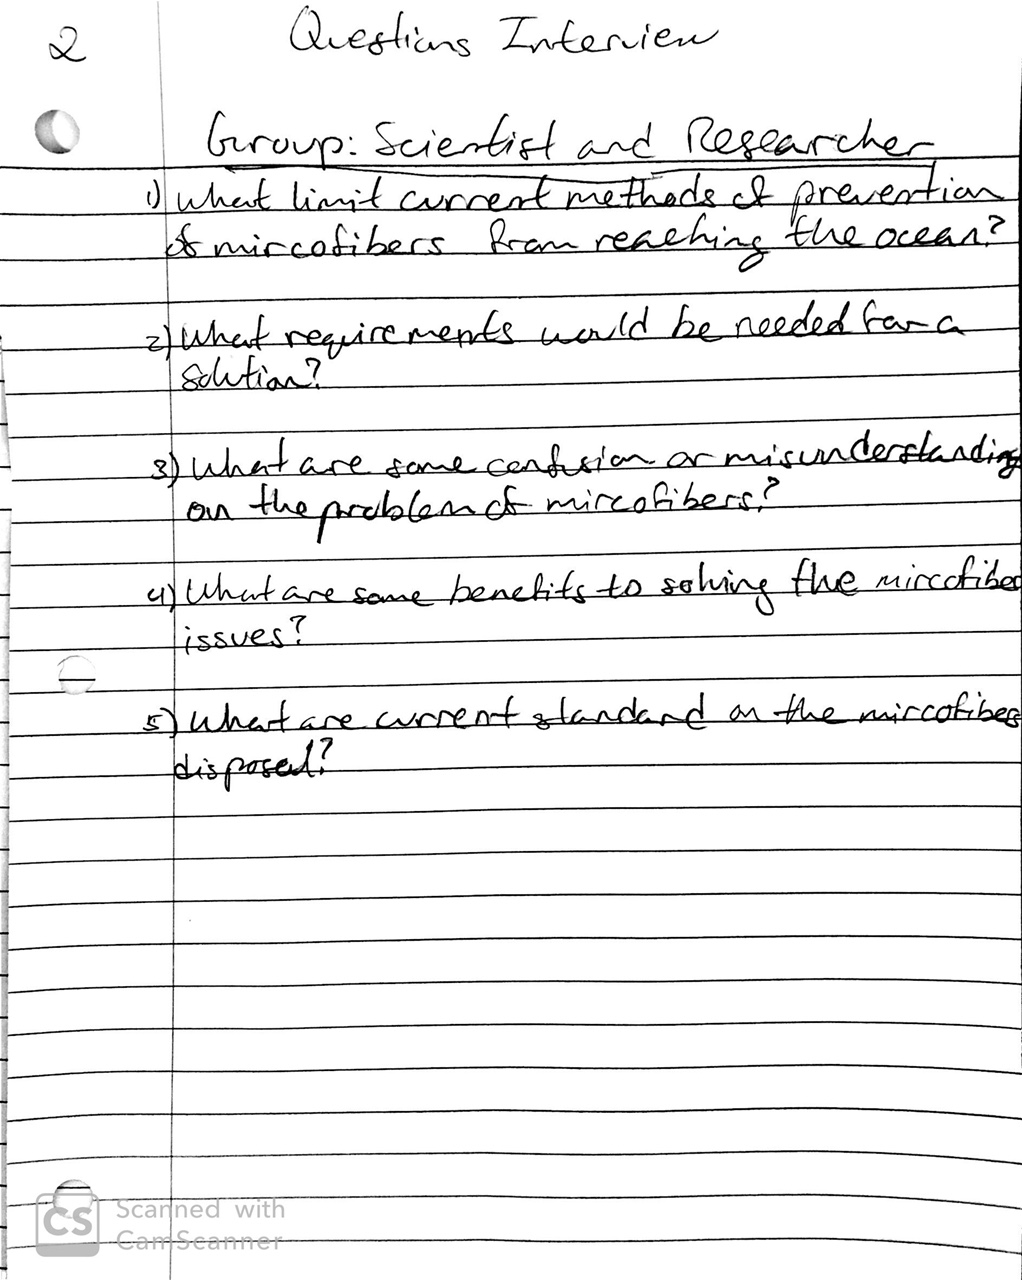 2
Questions Interview
Group: Scientist and Researcher
1) What limit current methods of prevention
of mircofibers from reaching the ocean?
2) What requirements would be needed for a
solution?
3) What are some confusion or misunderstanding
on the problem of mircofibers?
4) What are some benefits to solving the mircofiber
issues?
5) What are current standard on the mircofibers
disposed?
CS Scanned with
CamScanner